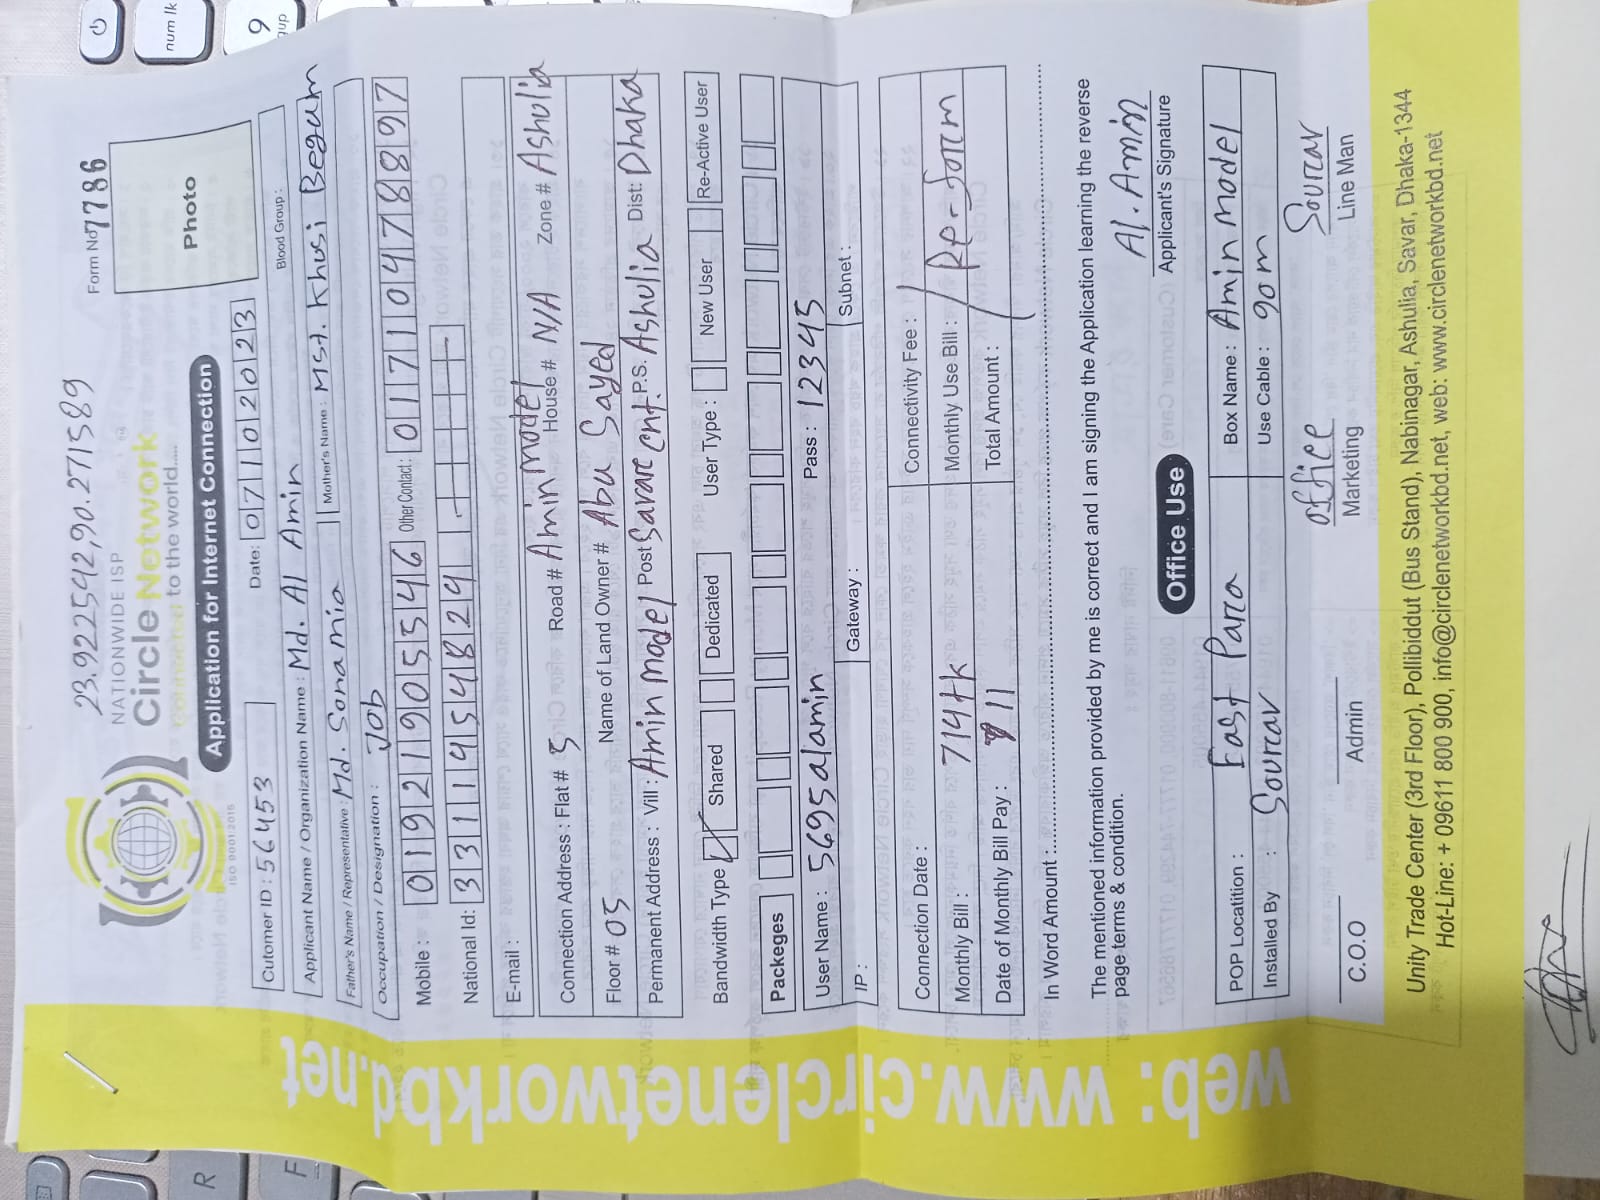 23.9225542,90.271589
NATIONWIDE ISP
Circle Network
Connected to the world....
ISO 9001:2015
Form No 7786
Photo
Application for Internet Connection
Cutomer ID : 56453 Date: 07102023
Applicant Name / Organization Name : Md. Al Amin Blood Group :
Father's Name / Representative : Md. Sonamia Mother's Name : Mst. Khusi Begum
Occupation / Designation : Job
Mobile : 01921905546 Other Contact : 01710478897
National Id: 3311454824
E-mail :
Connection Address : Flat # 5 Road # Amin model House # N/A Zone # Ashulia
Floor # 05 Name of Land Owner # Abu Sayed
Permanent Address : Vill : Amin model Post Savar cent. P.S. Ashulia Dist: Dhaka
Bandwidth Type Shared Dedicated User Type : New User Re-Active User
Packeges
User Name : 5695alamin Pass : 12345
IP : Gateway : Subnet :
Connection Date : Connectivity Fee :
Monthly Bill : 714tk Monthly Use Bill : Re-form
Date of Monthly Bill Pay : 11 Total Amount :
In Word Amount :
The mentioned information provided by me is correct and I am signing the Application learning the reverse
page terms & condition.
Al. Amin
Applicant's Signature
Office Use
POP Locatition : East Para Box Name : Amin model
Installed By : Sourav Use Cable : 90m
Office Sourav
C.O.O Admin Marketing Line Man
Unity Trade Center (3rd Floor), Pollibiddut (Bus Stand), Nabinagar, Ashulia, Savar, Dhaka-1344
Hot-Line: + 09611 800 900, info@circlenetworkbd.net, web: www.circlenetworkbd.net
web: www.circlenetworkbd.net
num lk
9
R
F